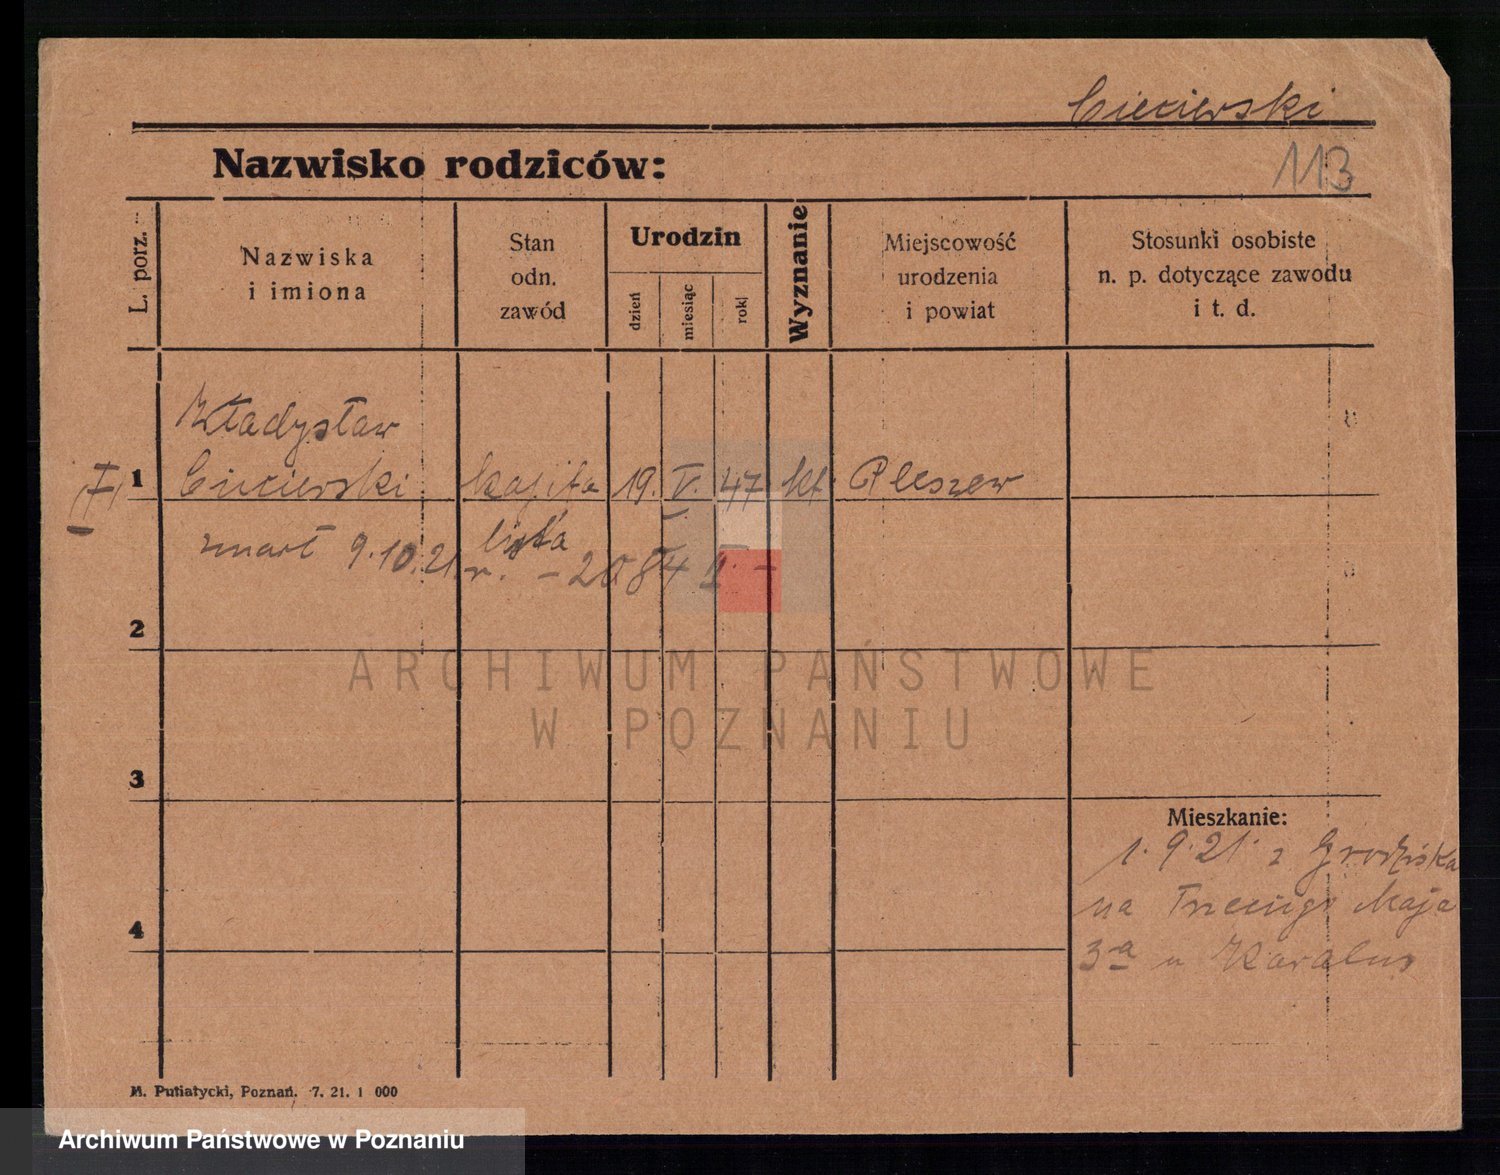 Ciecierski
Nazwisko rodziców:
113
L. porz.
Nazwiska
i imiona
Stan
odn.
zawód
Urodzin
dzień
miesiąc
rok
Wyznanie
Miejscowość
urodzenia
i powiat
Stosunki osobiste
n. p. dotyczące zawodu
i t. d.
Władysław
1 Ciecierski kapita 19. V. 47 kt. Pleszew
lista
zmarł 9.10.21 r. – 2084
2
ARCHIWUM PAŃSTWOWE
W POZNANIU
3
Mieszkanie:
1.9.21. z Grodziska
na Trzeciego Maja
4
3a u Karalus
M. Putiatycki, Poznań. 7. 21. 1 000
Archiwum Państwowe w Poznaniu